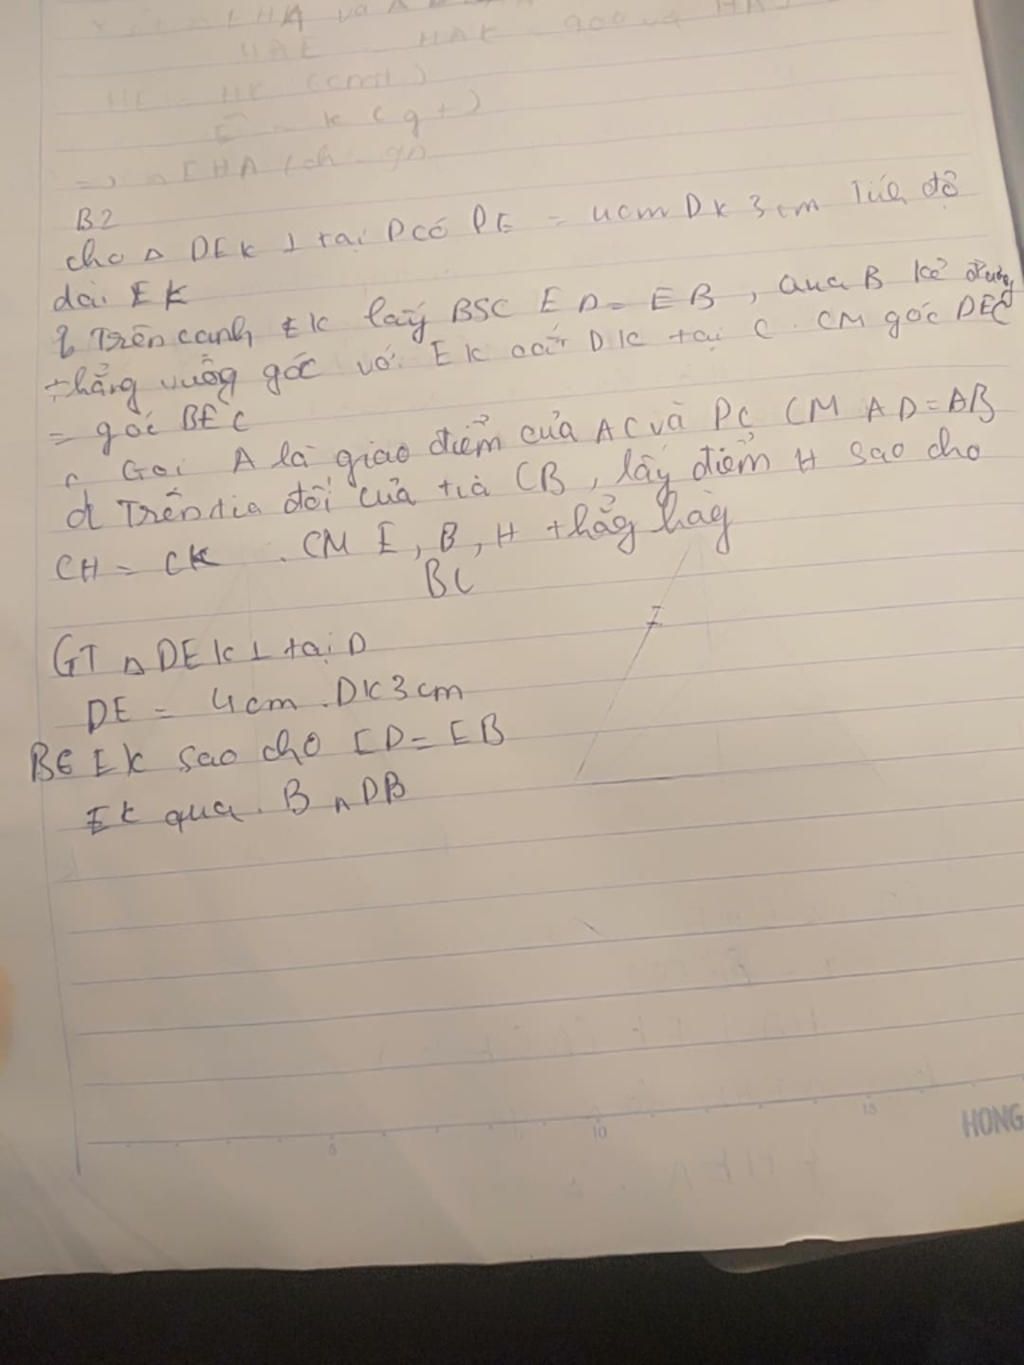 HAE HAK = 900 và HA
HE = HK (cmt)
E = K (gt)
=> △ EHA (ch - gn
B2
cho △ DEK ⊥ tại D có DE = 4cm DK 3cm Tính độ
dài EK
b Trên cạnh EK lấy BSC ED = EB, Qua B kẻ đường
thẳng vuông góc với EK cắt DK tại C. CM góc DEC
= góc BEC
c Gọi A là giao điểm của AC và DC CM AD = AB
d Trên tia đối của tia CB, lấy điểm H sao cho
CH = CK . CM E, B, H thẳg hàg
BC
GT △ DEK ⊥ tại D
DE = 4cm . DK 3cm
B∈ EK sao cho ED = EB
EK qua. B ∩ DB
5 10 15
HONG